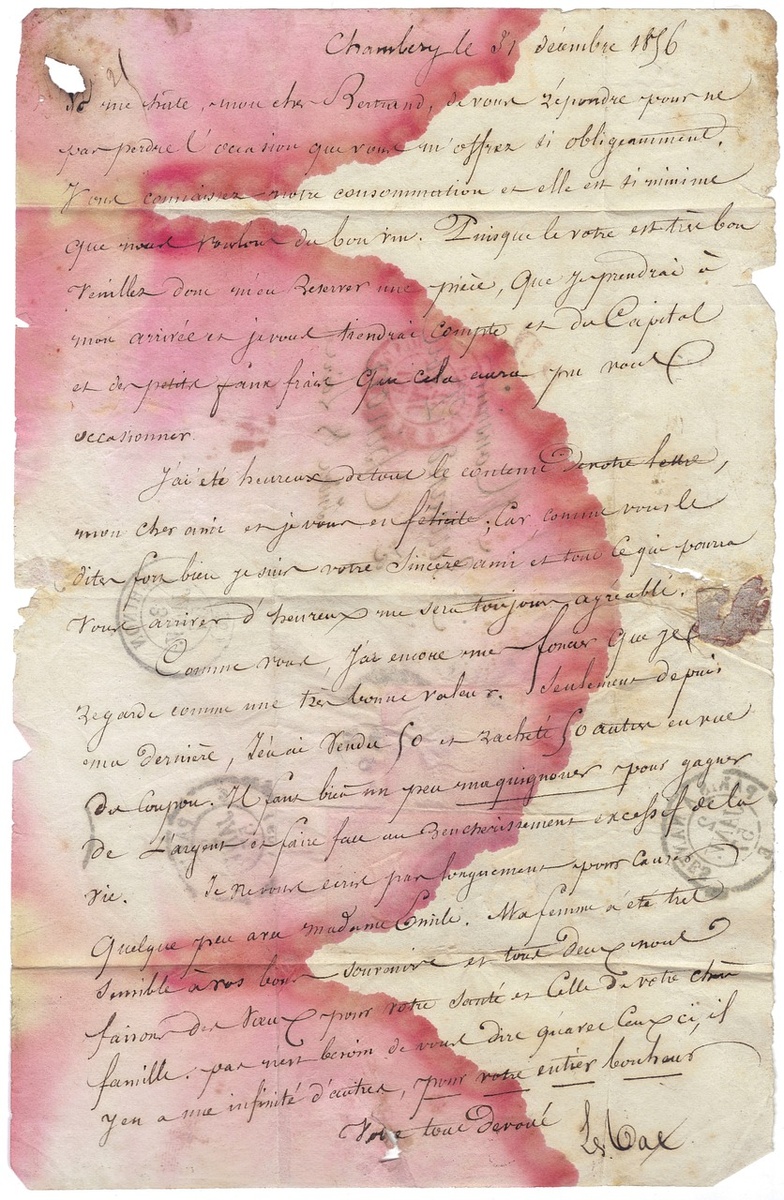 Chambery le 31 décembre 1856
Je me hâte, mon cher Bertrand, de vous répondre pour ne
pas perdre l'occasion que vous m'offrez si obligeamment.
Vous connaissez notre consommation et elle est si minime
que nous voulons du bon vin. Puisque le votre est très bon
Veuillez donc m'en reserver une pièce, que je prendrai à
mon arrivée et je vous tiendrai compte et du Capital
et des petits faux frais que cela aura pu vous
occasionner.
J'ai été heureux de tout le contenu de votre lettre,
mon cher ami et je vous en félicite ; Car, comme vous le
dites fort bien je suis votre Sincère ami et tout ce qui pourra
Vous arriver d'heureux me sera toujours agréable.
Comme vous, j'ai encore mes que je
regarde comme une très bonne valeur. Seulement depuis
ma dernière, j'en ai vendu 50 et racheté 50 autres en vue
du Coupon. Il faut bien un peu maquignoner pour gagner
de L'argent et faire face au rencherissement excessif de la
vie. Je ne vous écris pas longuement pour causer
Quelque peu avec madame Emile. Ma femme a été très
sensible à vos bons souvenirs et tous deux nous
faisons des Vœux pour votre santé et Celle de votre chère
famille. pas n'est besoin de vous dire qu'avec Ceux ci, il
y en a une infinité d'autres, pour votre entier bonheur
Votre tout devoué